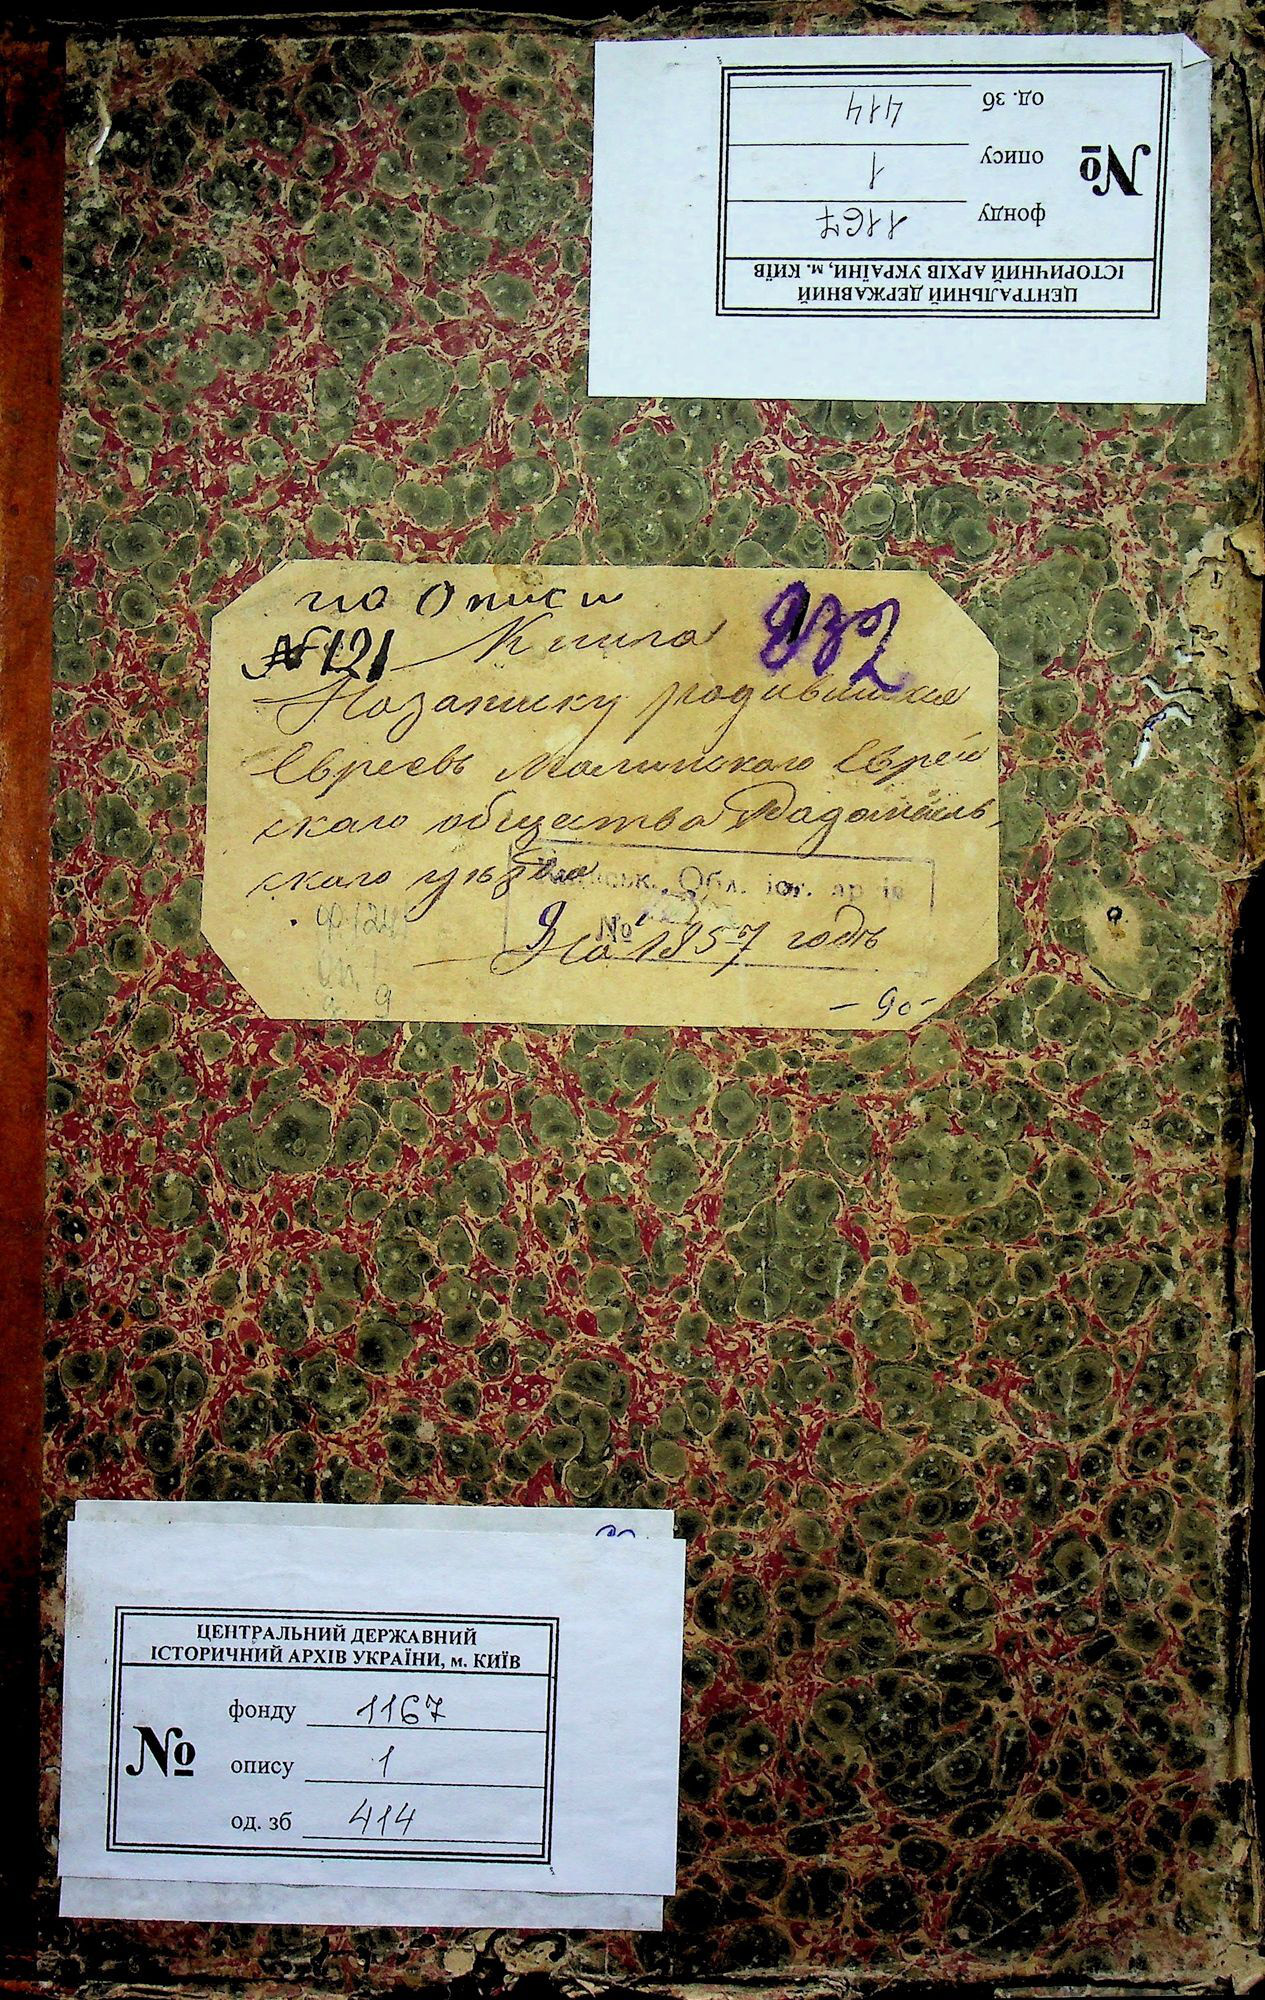 ЦЕНТРАЛЬНИЙ ДЕРЖАВНИЙ
ІСТОРИЧНИЙ АРХІВ УКРАЇНИ, м. КИЇВ
№
фонду 1167
опису 1
од. зб 414
по Описи
№ 121
Книга
932
На записку родившихся
Евреевъ Малинскаго Еврей
скаго общества Радомысль,
скаго уѣзда
Обл. іст. архів
№
9
На 1857 годъ
оп. 1
9
- 90 -
ЦЕНТРАЛЬНИЙ ДЕРЖАВНИЙ
ІСТОРИЧНИЙ АРХІВ УКРАЇНИ, м. КИЇВ
№
фонду 1167
опису 1
од. зб 414